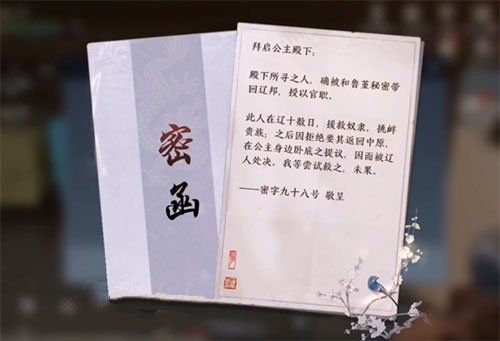 密函
拜启公主殿下：
殿下所寻之人，确被和鲁堇秘密带
回辽邦，授以官职。
此人在辽十数日，援救奴隶，挑衅
贵族，之后因拒绝要其返回中原，
在公主身边卧底之提议，因而被辽
人处决。我等尝试救之，未果。
——密字九十八号 敬呈